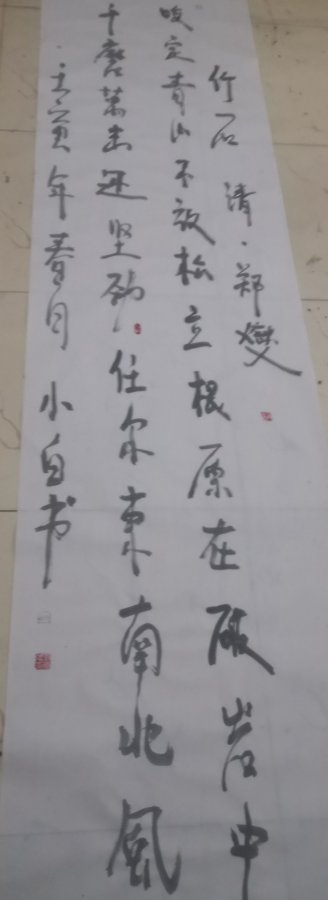 竹石 清·郑燮
咬定青山不放松立根原在破岩中
千磨萬击还坚劲任尔东南北風
壬寅年春月 小白书